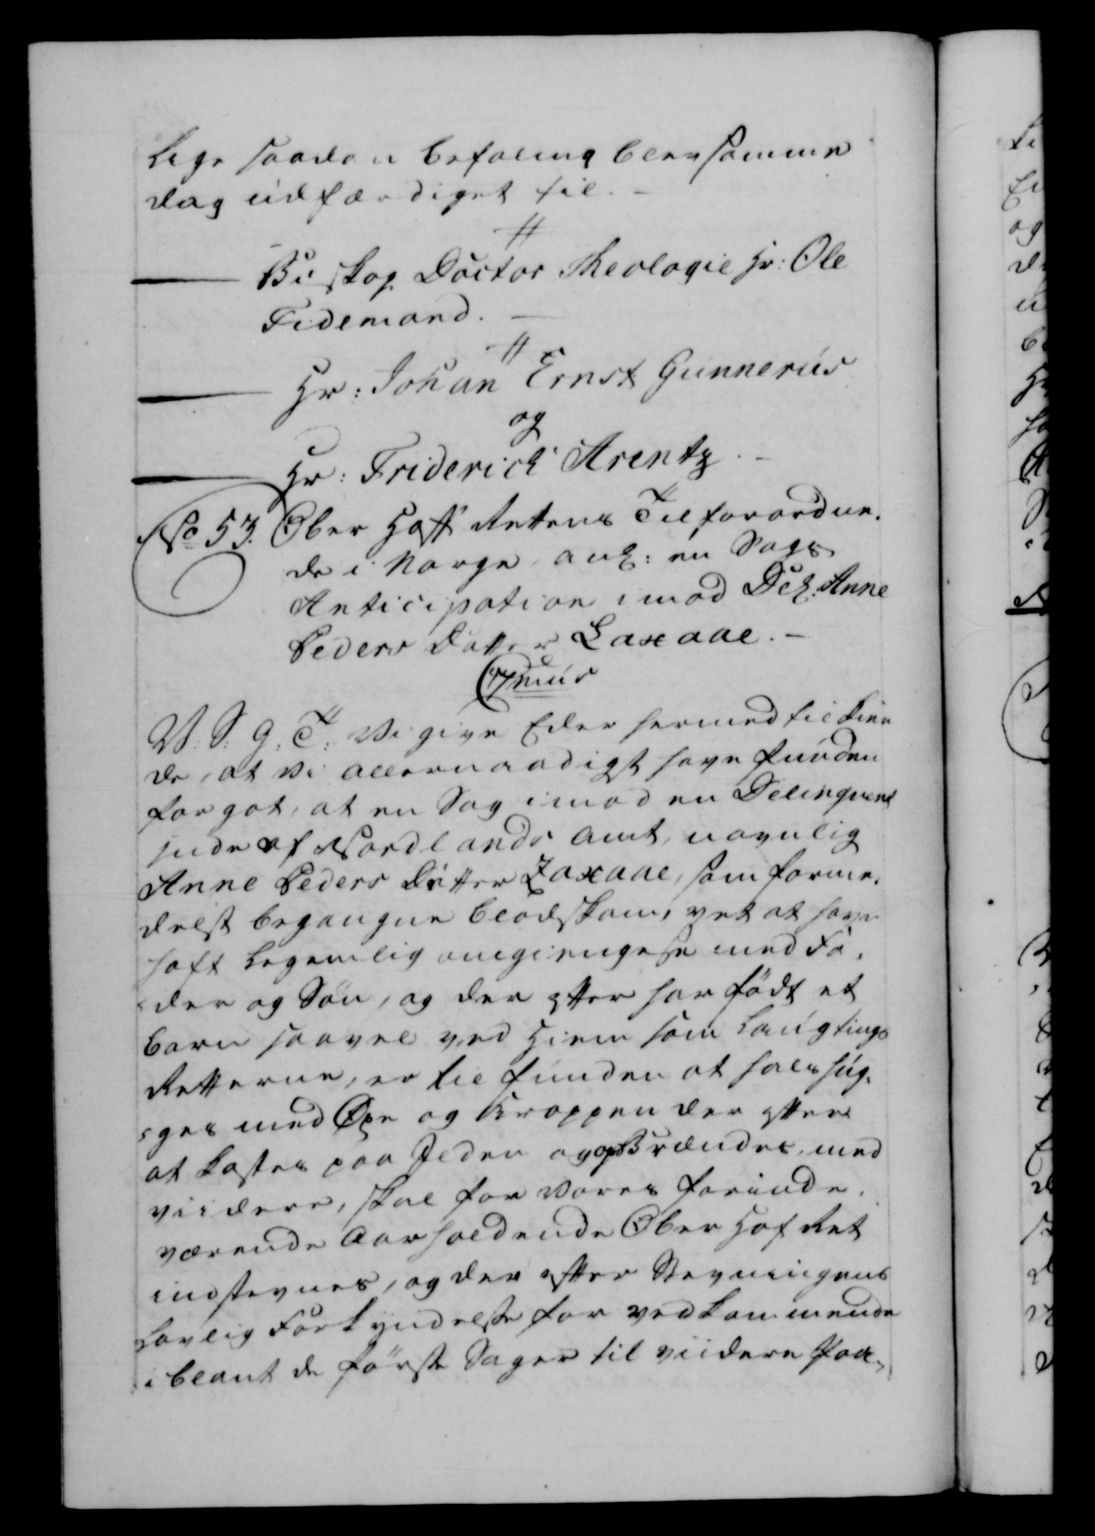 Lige saadan befaling blev samme
dag udfærdiget til. —
#
— Biskop Doctor Theologiæ Hr: Ole
Tidemand. —
#
— Hr: Johan Ernst Gunnerus
og
— Hr: Friderich Arentz. —
No 53. Ober Hoff Rettens Tilforordne.
de i Norge, ang: en Sags
Anticipation imod Deg. Anne
Peders Datter Laxaae. —
V: S: G: T: Vi give Eder hermed tilkien
de, at vi allernaadigst have funden
for got, at en Sag imod en Delinqvent
inde af Nordlands Amt, navnlig
Anne Peders Datter Laxaae, som forme.
delst begangne blodskam, ved at have
haft legemlig omgiengelse med Fa.
der og Søn, og der efter har født et
barn saavel ved Hiem som Laugtings
Retterne, er tilfunden at halshug.
ges med Øxe og Kroppen der efter
at kastes paa Ilden og opbrændes, med
viidere, skal for Vores forinde.
værende Aarholdende Ober Hof Ret
indstevnes, og der efter Stevningens
Lovlig Forkyndelse for vedkommende
iblant de første Sager til viidere Paa-